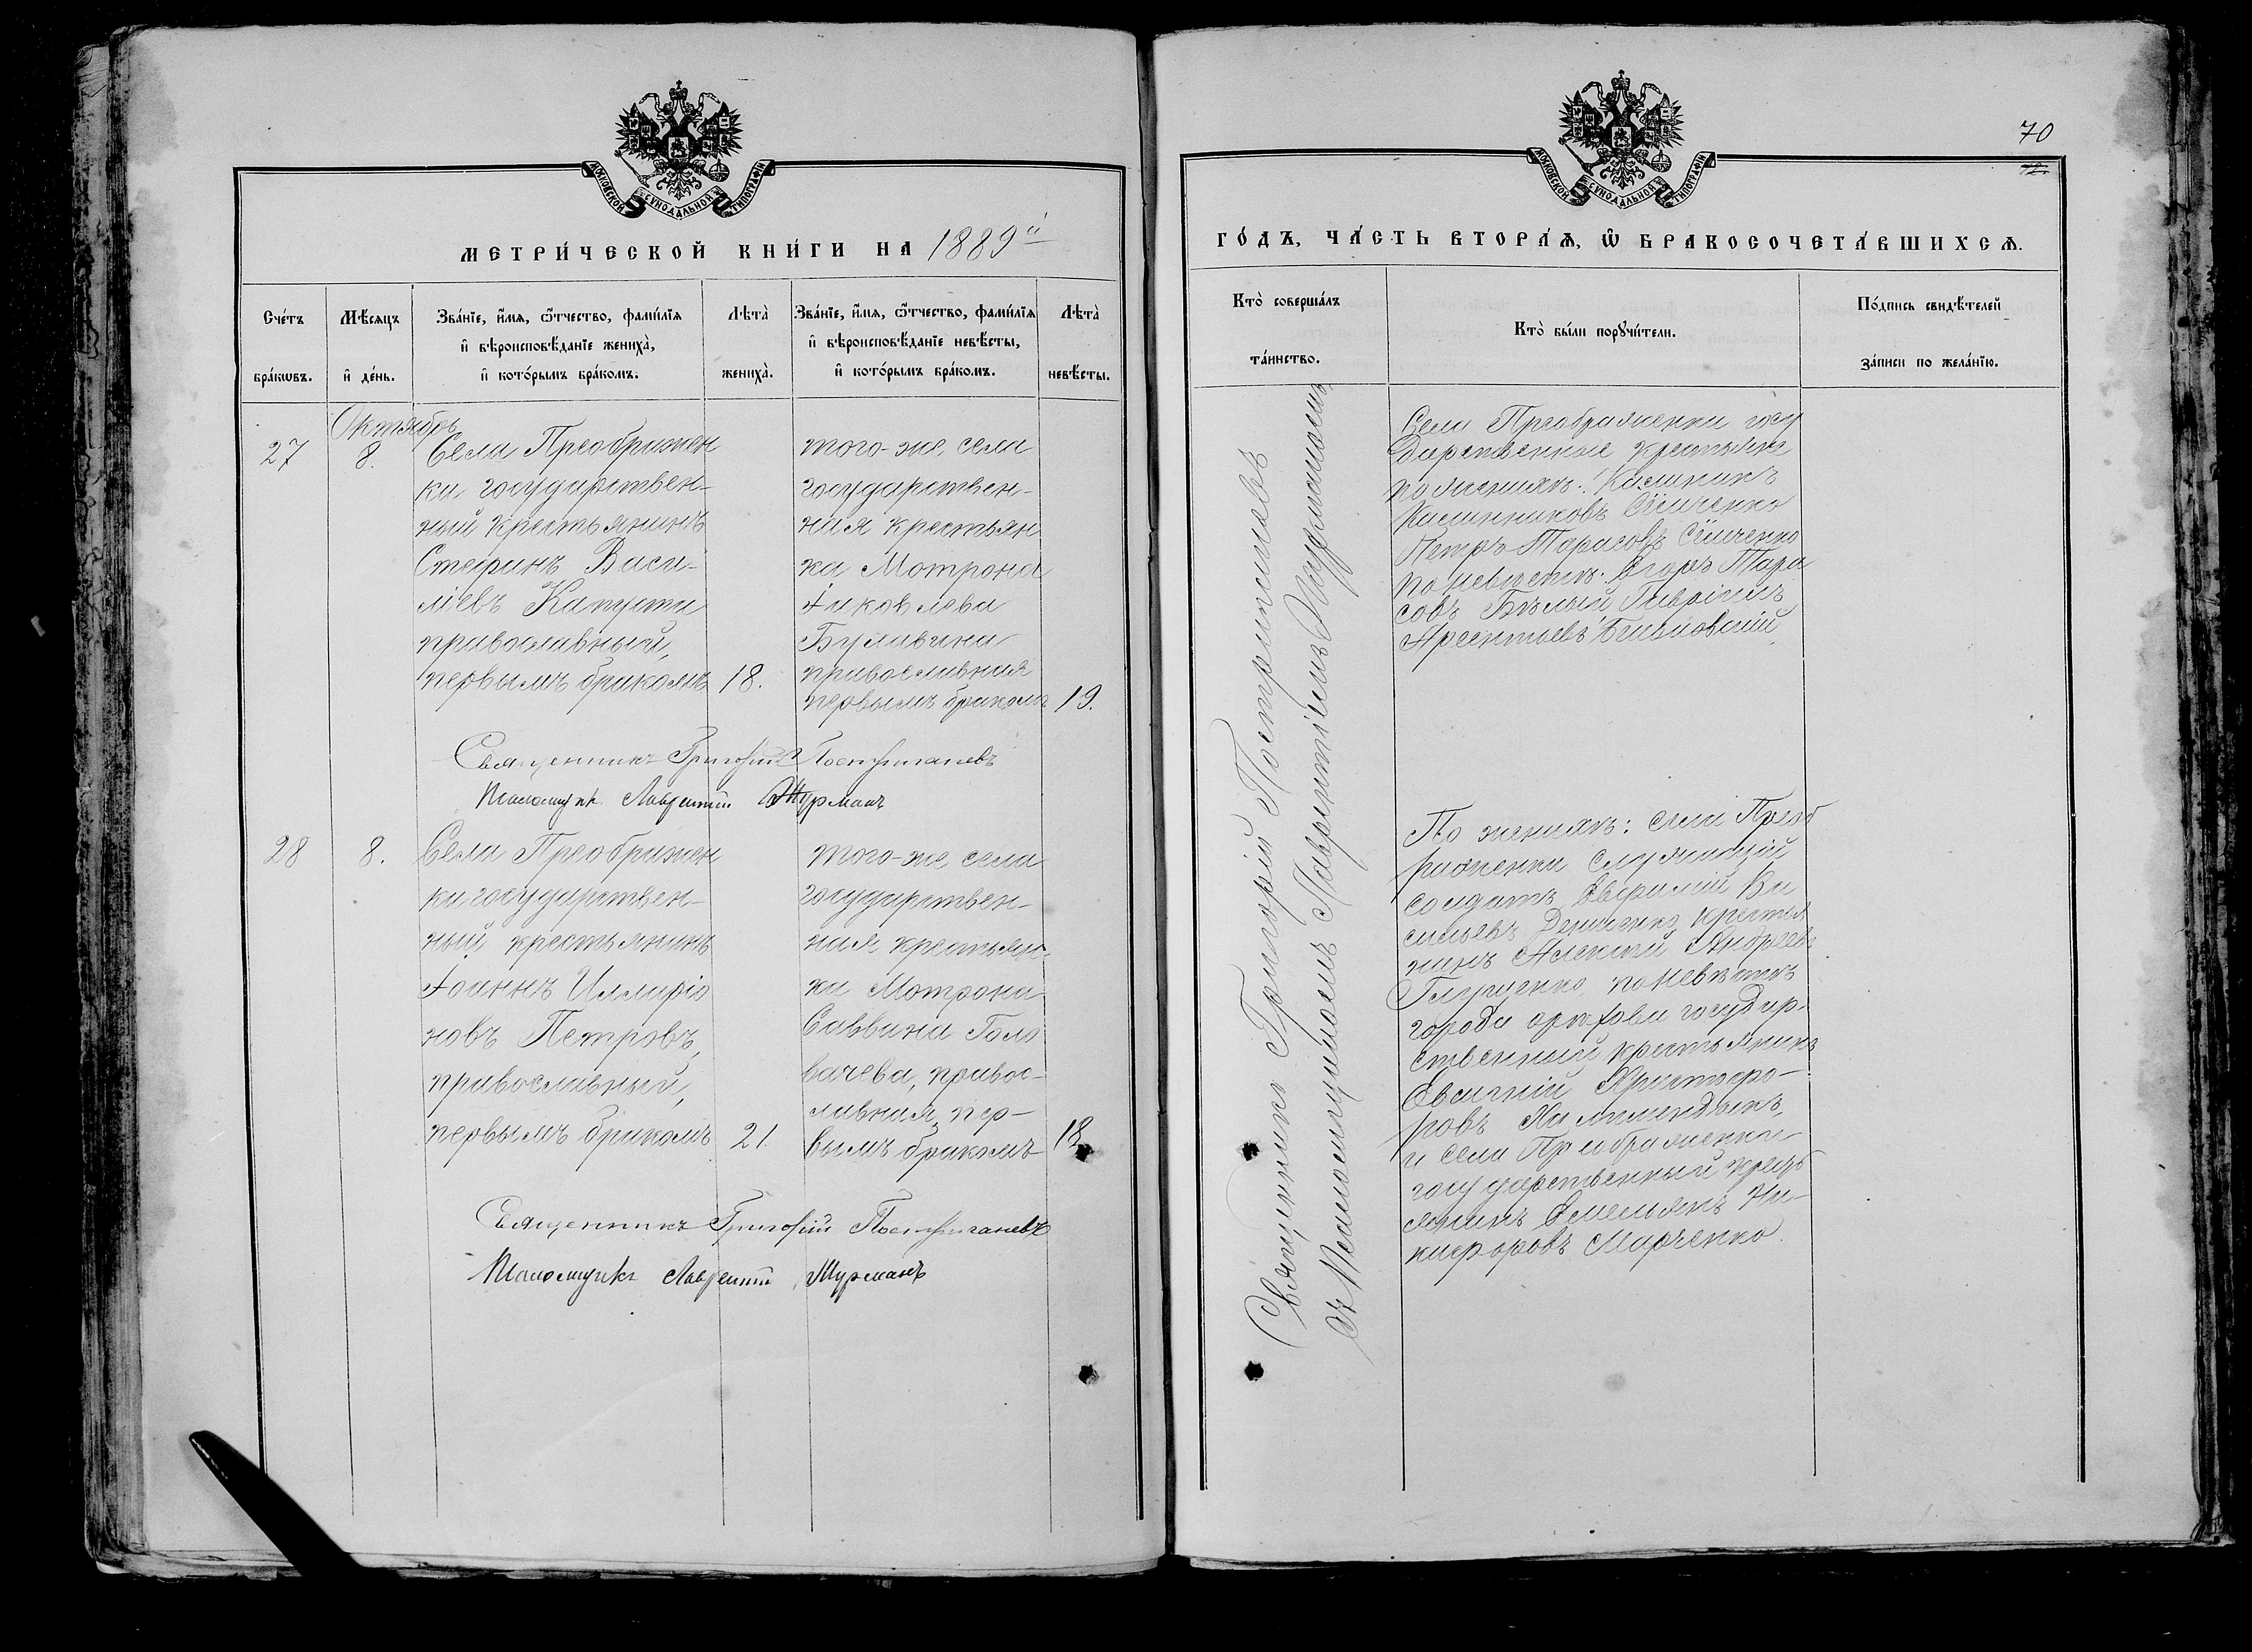 МОСКОВСКОЙ СѴНОДАЛЬНОЙ ТИПОГРАФІИ
МЕТРИ́ЧЕСКОЙ КНИ́ГИ НА 1889й
Сче́тъ бра́кωвъ.
Мѣ́сяцъ и҆ де́нь.
Зва́нїе, и҆́мѧ, ѻ҆́тчество, фами́лїѧ
и҆ вѣроисповѣ́данїе женихà,
и҆ кото́рымъ бра́комъ.
Лѣтà женихà.
Зва́нїе, и҆́мѧ, ѻ҆́тчество, фами́лїѧ
и҆ вѣроисповѣ́данїе невѣ́сты,
и҆ кото́рымъ бра́комъ.
Лѣтà невѣ́сты.
27
Октябрь
8.
Села Преображен
ки государствен-
ный крестьянинъ
Стефанъ Васи-
ліевъ Капуста
православный,
первымъ бракомъ
18.
того-же села
государствен-
ная крестьян
ка Мотрона
Іаковлева
Булавина
православная
первымъ бракомъ
19.
Священникъ Григорій Постригачевъ
Псаломщикъ Лаврентій Журманъ
28
8.
Села Преображен
ки государствен-
ный крестьянинъ
Іоаннъ Илларіо
новъ Петровъ,
православный,
первымъ бракомъ
21.
того-же села
государствен-
ная крестьян-
ка Мотрона
Саввина Голо
вачева, правос-
лавная, пер-
вымъ бракомъ
18
Священникъ Григорій Постригачевъ
Псаломщикъ Лаврентій Журманъ
70
МОСКОВСКОЙ СѴНОДАЛЬНОЙ ТИПОГРАФІИ
ГО́ДЪ, ЧА́СТЬ ВТОРА́Ѧ, Ѽ БРАКОСОЧЕТА́ВШИХСѦ.
Кто̀ соверша́лъ
та́инство.
Кто̀ бы́ли порꙋчи́тели.
По́дпись свидѣ́телей
за́писи по жела́нїю.
Священникъ Григорій Постригачевъ
съ Псаломщикомъ Лаврентіемъ Журманомъ
Села Преображенки госу
дарственные крестьяне
по женихѣ: Калиникъ
Калинниковъ
Петръ Тарасовъ
по невѣстѣ: Егоръ Тара
совъ Бѣлый Гавріилъ
По женихѣ: села Преоб
раженки служащій
солдатъ Евфимій Ва
сильевъ Денисенко, крестья
нинъ Алексій Андреевъ
Глущенко по невѣстѣ
города Орѣхова государ-
ственный крестьянинъ
Христофо-
ровъ
и села Преображенки
государственный крест
янинъ Емельянъ Ни-
кифоровъ Марченко.